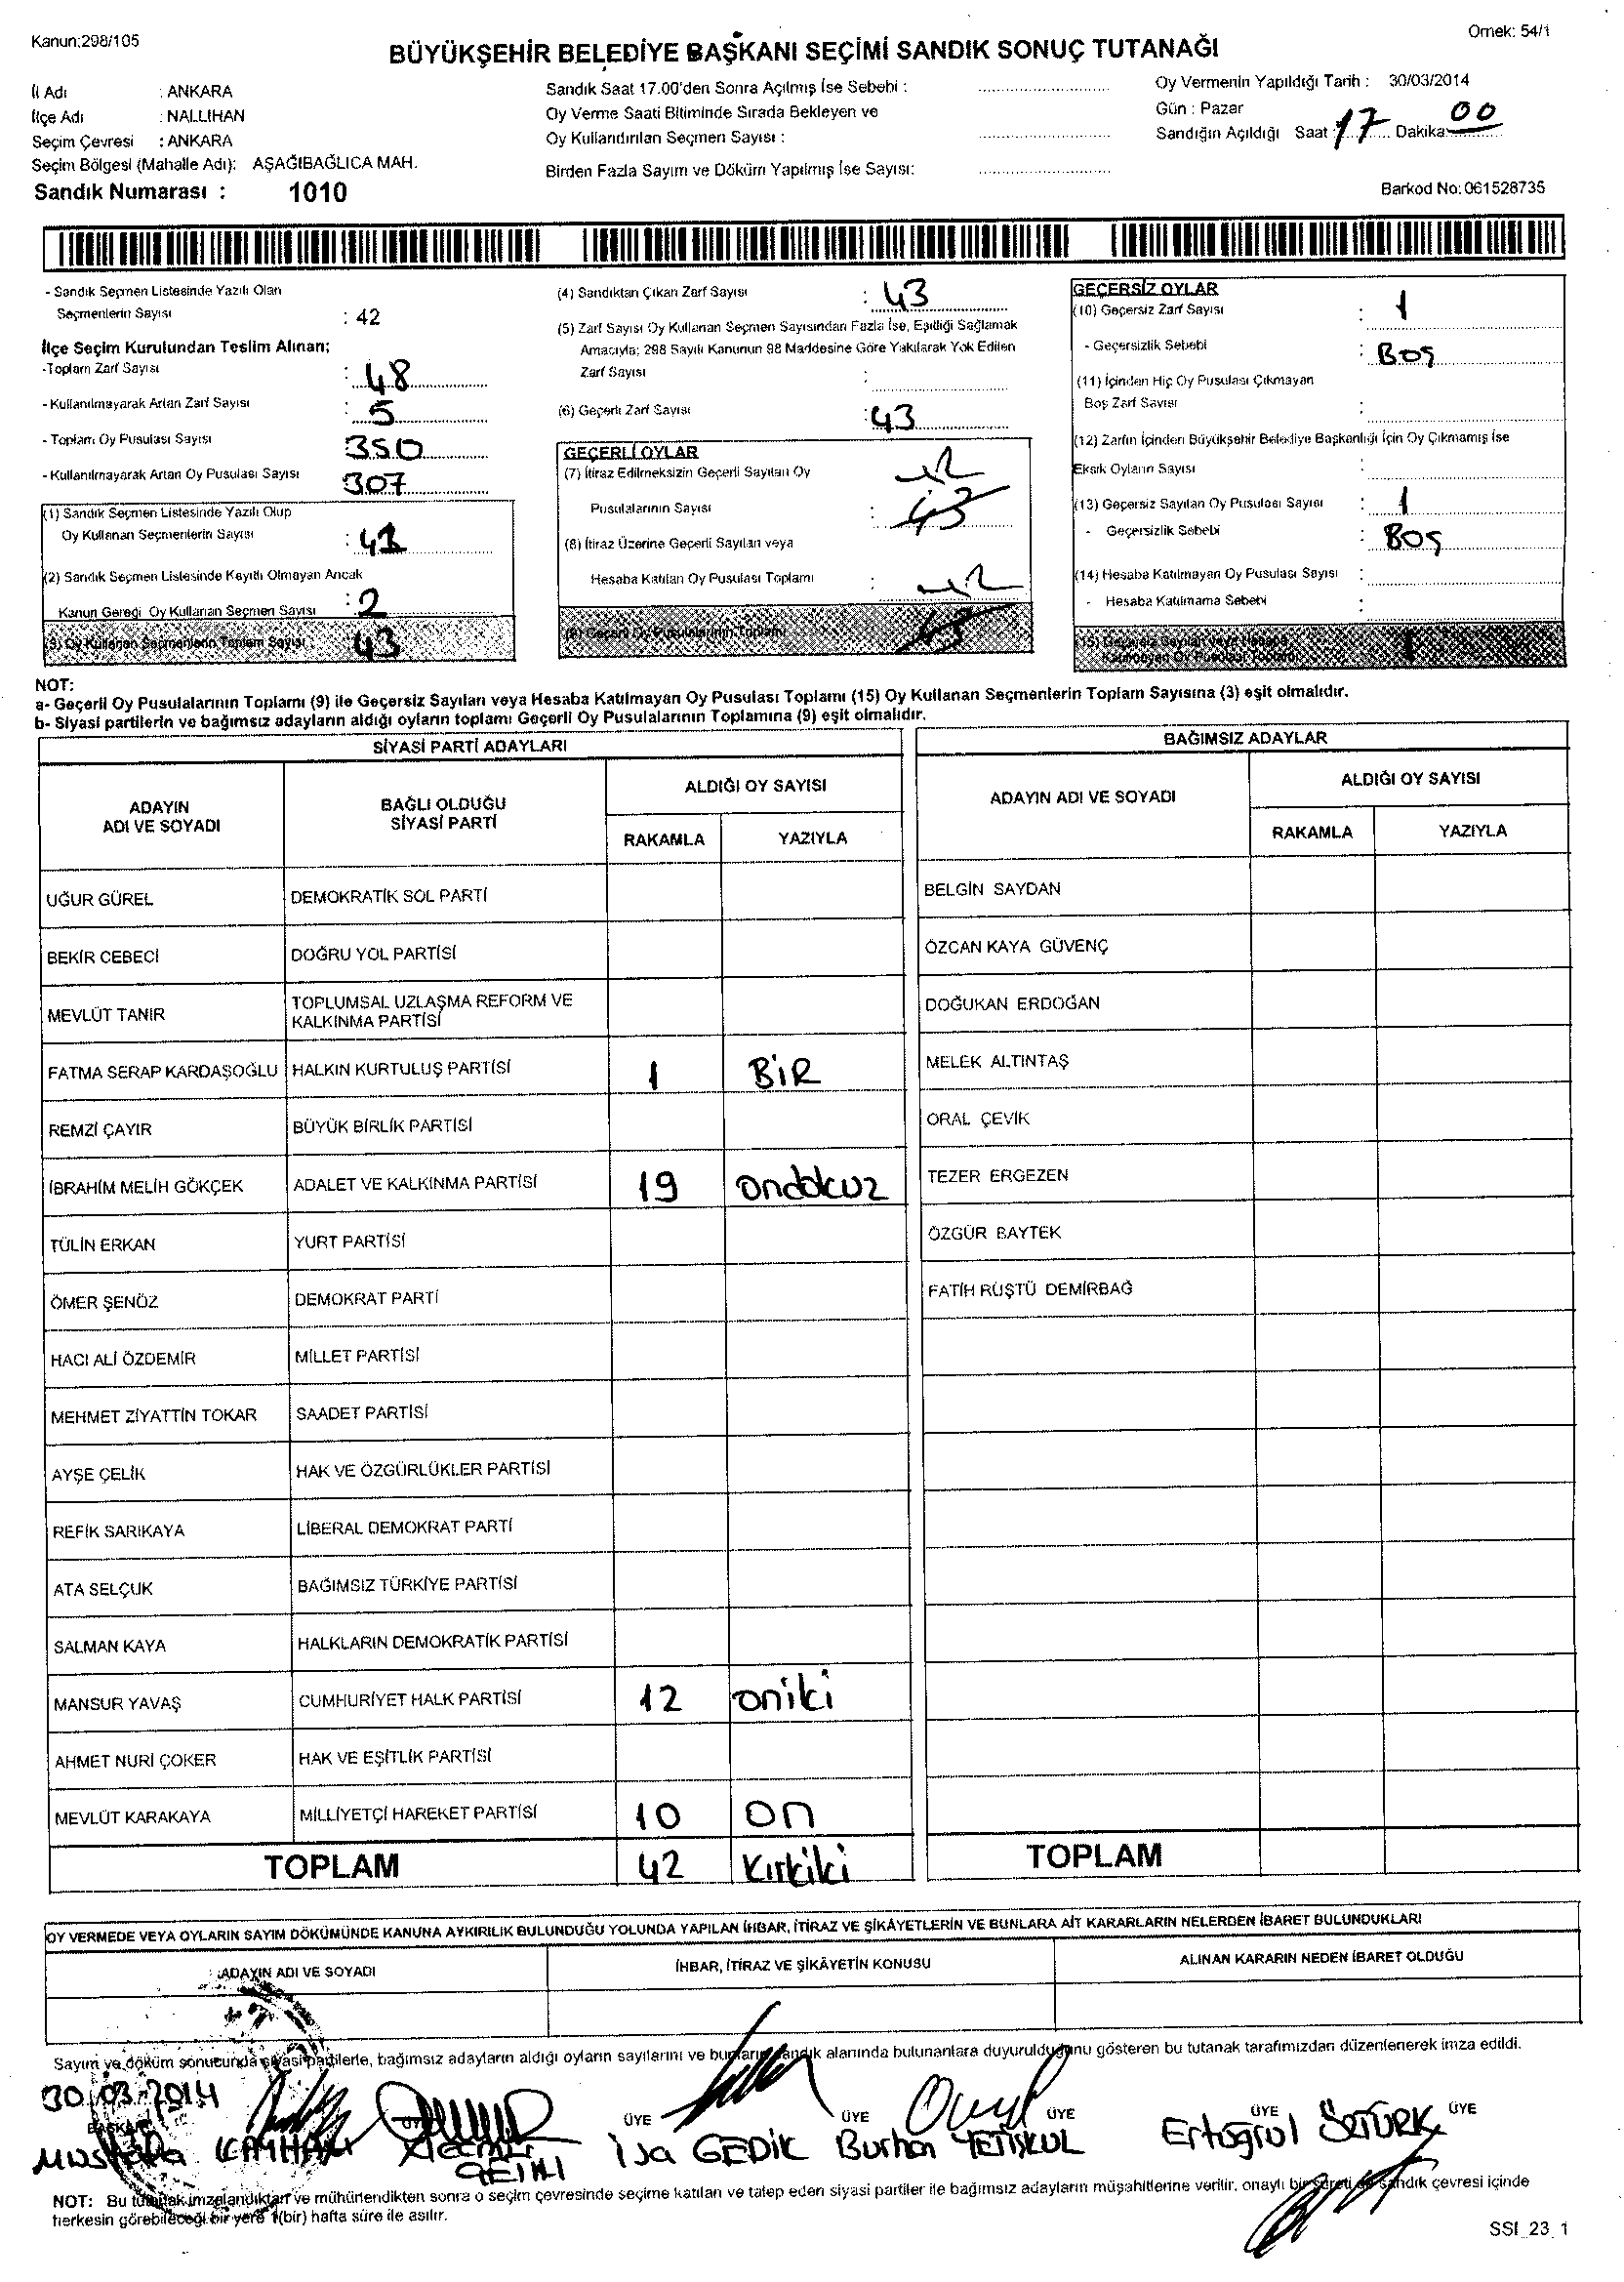 Kanun:298/105
Örnek: 54/1
BÜYÜKŞEHİR BELEDİYE BAŞKANI SEÇİMİ SANDIK SONUÇ TUTANAĞI
İl Adı : ANKARA
İlçe Adı : NALLIHAN
Seçim Çevresi : ANKARA
Seçim Bölgesi (Mahalle Adı): AŞAĞIBAĞLICA MAH.
Sandık Numarası : 1010
Sandık Saat 17.00'den Sonra Açılmış İse Sebebi :
Oy Verme Saati Bitiminde Sırada Bekleyen ve
Oy Kullandırılan Seçmen Sayısı :
Birden Fazla Sayım ve Döküm Yapılmış İse Sayısı:
Oy Vermenin Yapıldığı Tarih : 30/03/2014
Gün : Pazar
Sandığın Açıldığı Saat 17 Dakika 00
Barkod No:061528735
- Sandık Seçmen Listesinde Yazılı Olan
Seçmenlerin Sayısı : 42
İlçe Seçim Kurulundan Teslim Alınan;
-Toplam Zarf Sayısı : 48
- Kullanılmayarak Artan Zarf Sayısı : 5
- Toplam Oy Pusulası Sayısı 350
- Kullanılmayarak Artan Oy Pusulası Sayısı 307
(1) Sandık Seçmen Listesinde Yazılı Olup
Oy Kullanan Seçmenlerin Sayısı : 41
(2) Sandık Seçmen Listesinde Kayıtlı Olmayan Ancak
Kanun Gereği Oy Kullanan Seçmen Sayısı : 2
(3) Oy Kullanan Seçmenlerin Toplam Sayısı : 43
(4) Sandıktan Çıkan Zarf Sayısı : 43
(5) Zarf Sayısı Oy Kullanan Seçmen Sayısından Fazla İse, Eşitliği Sağlamak
Amacıyla; 298 Sayılı Kanunun 98 Maddesine Göre Yakılarak Yok Edilen
Zarf Sayısı :
(6) Geçerli Zarf Sayısı : 43
GEÇERLİ OYLAR
(7) İtiraz Edilmeksizin Geçerli Sayılan Oy
Pusulalarının Sayısı : 43
(8) İtiraz Üzerine Geçerli Sayılan veya
Hesaba Katılan Oy Pusulası Toplamı :
(9) Geçerli Oy Pusulalarının Toplamı 43
GEÇERSİZ OYLAR
(10) Geçersiz Zarf Sayısı : 1
- Geçersizlik Sebebi : BOŞ
(11) İçinden Hiç Oy Pusulası Çıkmayan
Boş Zarf Sayısı :
(12) Zarfın İçinden Büyükşehir Belediye Başkanlığı İçin Oy Çıkmamış İse
Eksik Oyların Sayısı :
(13) Geçersiz Sayılan Oy Pusulası Sayısı : 1
- Geçersizlik Sebebi : BOŞ
(14) Hesaba Katılmayan Oy Pusulası Sayısı :
- Hesaba Katılmama Sebebi :
(15) Geçersiz Sayılan veya Hesaba
Katılmayan Oy Pusulası Toplamı 1
NOT:
a- Geçerli Oy Pusulalarının Toplamı (9) ile Geçersiz Sayılan veya Hesaba Katılmayan Oy Pusulası Toplamı (15) Oy Kullanan Seçmenlerin Toplam Sayısına (3) eşit olmalıdır.
b- Siyasi partilerin ve bağımsız adayların aldığı oyların toplamı Geçerli Oy Pusulalarının Toplamına (9) eşit olmalıdır.
SİYASİ PARTİ ADAYLARI
ADAYIN ADI VE SOYADI BAĞLI OLDUĞU SİYASİ PARTİ ALDIĞI OY SAYISI
RAKAMLA YAZIYLA
UĞUR GÜREL DEMOKRATİK SOL PARTİ
BEKİR CEBECİ DOĞRU YOL PARTİSİ
MEVLÜT TANIR TOPLUMSAL UZLAŞMA REFORM VE KALKINMA PARTİSİ
FATMA SERAP KARDAŞOĞLU HALKIN KURTULUŞ PARTİSİ 1 BİR
REMZİ ÇAYIR BÜYÜK BİRLİK PARTİSİ
İBRAHİM MELİH GÖKÇEK ADALET VE KALKINMA PARTİSİ 19 ondokuz
TÜLİN ERKAN YURT PARTİSİ
ÖMER ŞENÖZ DEMOKRAT PARTİ
HACI ALİ ÖZDEMİR MİLLET PARTİSİ
MEHMET ZİYATTİN TOKAR SAADET PARTİSİ
AYŞE ÇELİK HAK VE ÖZGÜRLÜKLER PARTİSİ
REFİK SARIKAYA LİBERAL DEMOKRAT PARTİ
ATA SELÇUK BAĞIMSIZ TÜRKİYE PARTİSİ
SALMAN KAYA HALKLARIN DEMOKRATİK PARTİSİ
MANSUR YAVAŞ CUMHURİYET HALK PARTİSİ 12 oniki
AHMET NURİ ÇOKER HAK VE EŞİTLİK PARTİSİ
MEVLÜT KARAKAYA MİLLİYETÇİ HAREKET PARTİSİ 10 on
TOPLAM 42 kırkiki
BAĞIMSIZ ADAYLAR
ADAYIN ADI VE SOYADI ALDIĞI OY SAYISI
RAKAMLA YAZIYLA
BELGİN SAYDAN
ÖZCAN KAYA GÜVENÇ
DOĞUKAN ERDOĞAN
MELEK ALTINTAŞ
ORAL ÇEVİK
TEZER ERGEZEN
ÖZGÜR BAYTEK
FATİH RÜŞTÜ DEMİRBAĞ
TOPLAM
OY VERMEDE VEYA OYLARIN SAYIM DÖKÜMÜNDE KANUNA AYKIRILIK BULUNDUĞU YOLUNDA YAPILAN İHBAR, İTİRAZ VE ŞİKÂYETLERİN VE BUNLARA AİT KARARLARIN NELERDEN İBARET BULUNDUKLARI
ADAYIN ADI VE SOYADI İHBAR, İTİRAZ VE ŞİKÂYETİN KONUSU ALINAN KARARIN NEDEN İBARET OLDUĞU
Sayım ve döküm sonucunda siyasi partilerle, bağımsız adayların aldığı oyların sayılarını ve bunların sandık alanında bulunanlara duyurulduğunu gösteren bu tutanak tarafımızdan düzenlenerek imza edildi.
30.03.2014
BAŞKAN ÜYE ÜYE ÜYE ÜYE ÜYE
Mustafa KAYHAN İsa GEDİK Burhan YETİŞKUL Ertuğrul ÖZTÜRK
NOT: Bu tutanak imzalandıktan ve mühürlendikten sonra o seçim çevresinde seçime katılan ve talep eden siyasi partiler ile bağımsız adayların müşahitlerine verilir, onaylı bir sureti de sandık çevresi içinde
herkesin görebileceği bir yere 1(bir) hafta süre ile asılır.
SSI_23_1